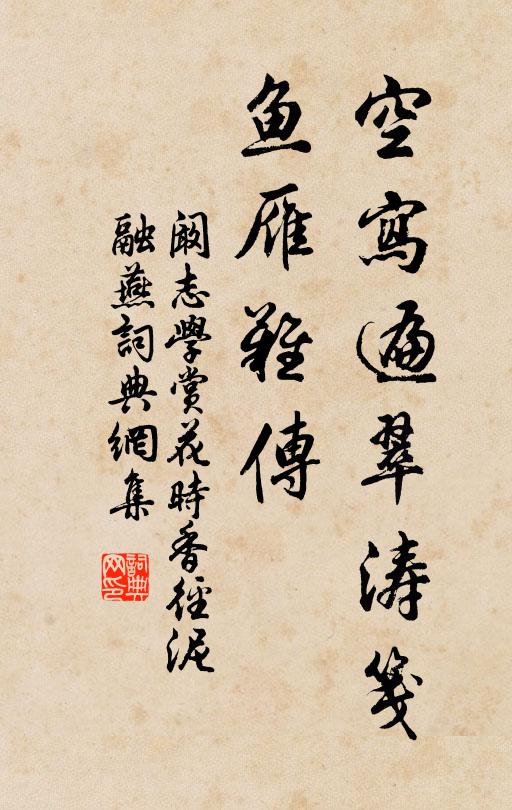 空寫遍翠濤箋
鱼雁難傳
阚志學賞花時香徑泥
融燕詞典網集
詞典网印